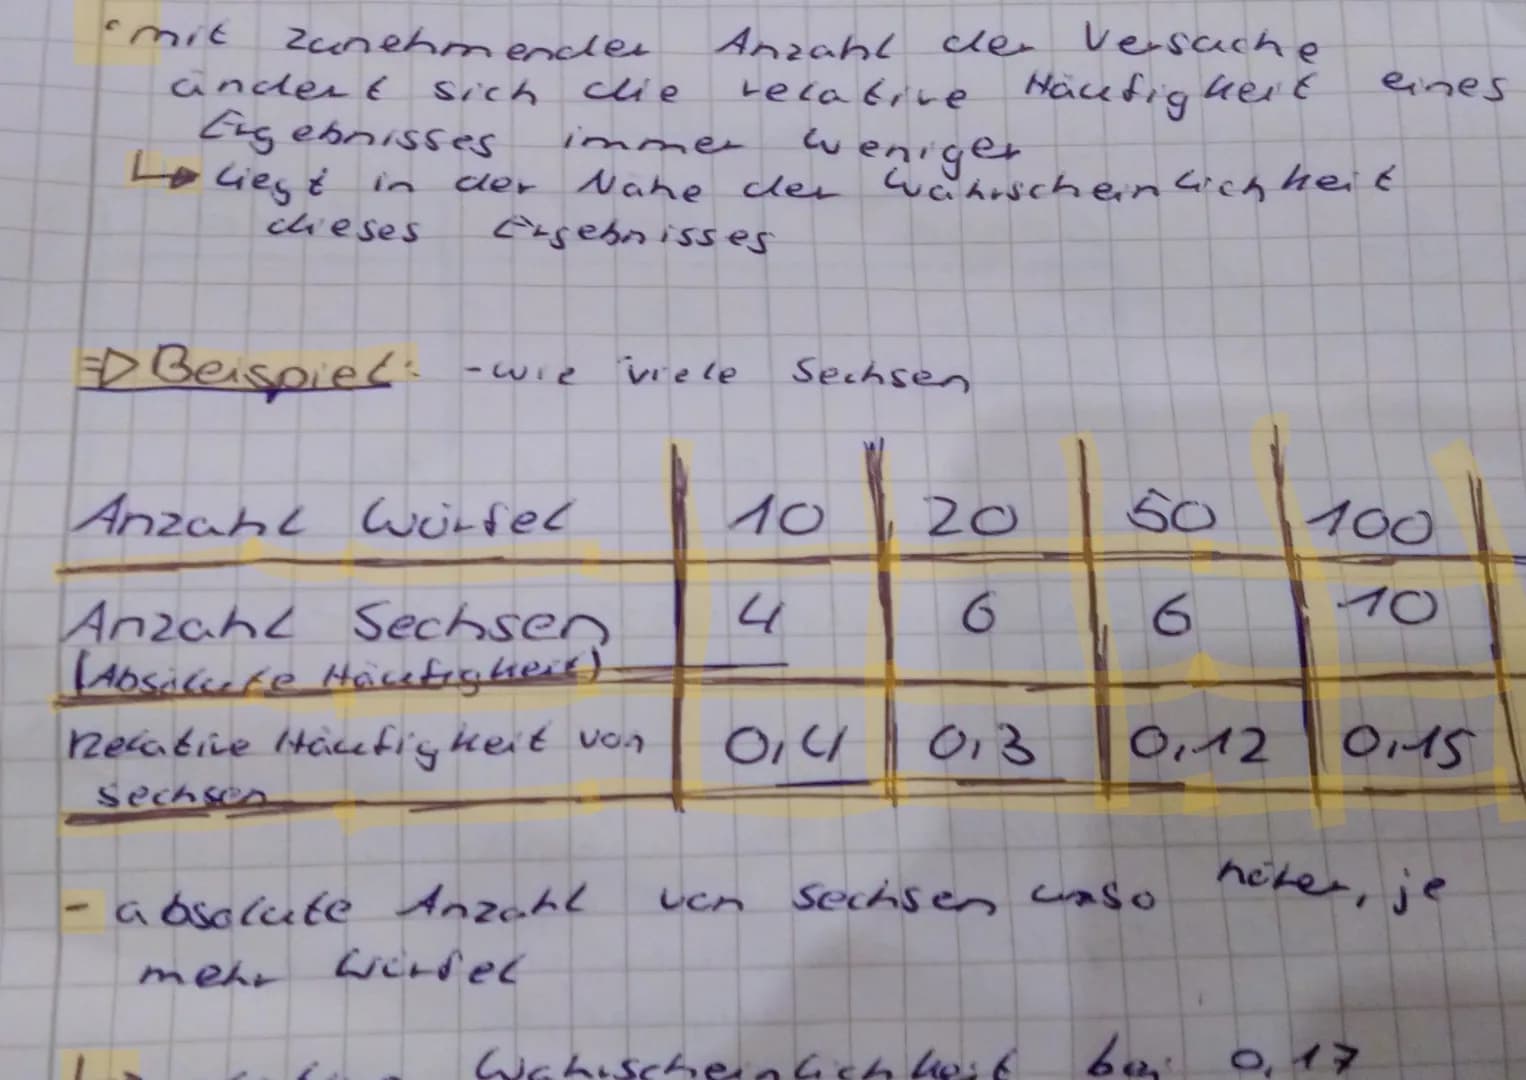 • mit zunehmender Anzahl der Versuche
ändert sich die relative Häufigkeit eines
Ergebnisses immer weniger
↳ liegt in der Nähe der Wahrscheinlichkeit
dieses Ergebnisses
⇒ Beispiel: - wie viele Sechsen
Anzahl Würfel 10 20 50 100
Anzahl Sechsen 4 6 6 10
(Absolute Häufigkeit)
Relative Häufigkeit von 0,4 0,3 0,12 0,15
sechsen
- absolute Anzahl von Sechsen umso höher, je
mehr Würfel
Wahrscheinlichkeit bei 0,17